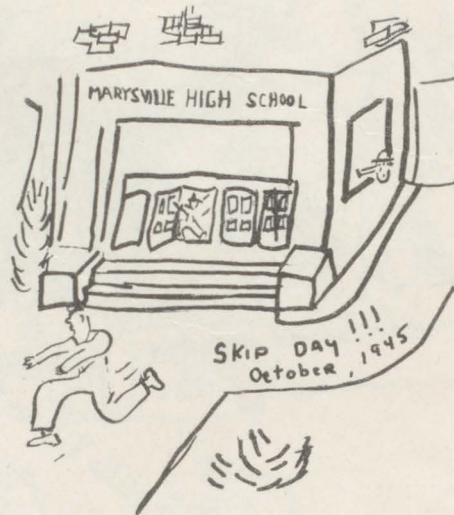 MARYSVILLE HIGH SCHOOL
SKIP DAY !!!
October, 1945